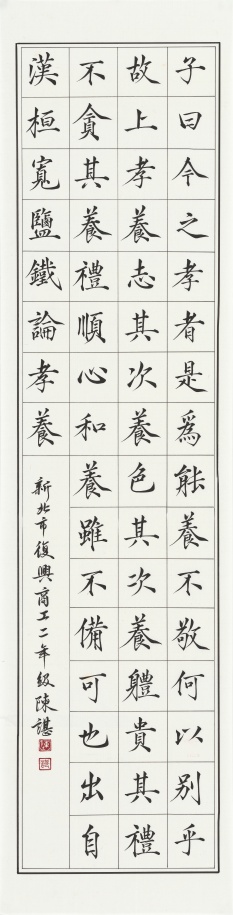 子曰今之孝者是為能養不敬何以別乎
故上孝養志其次養色其次養體貴其禮
不貪其養禮順心和養雖不備可也出自
漢桓寬鹽鐵論孝養
新北市復興商工二年級陳諶